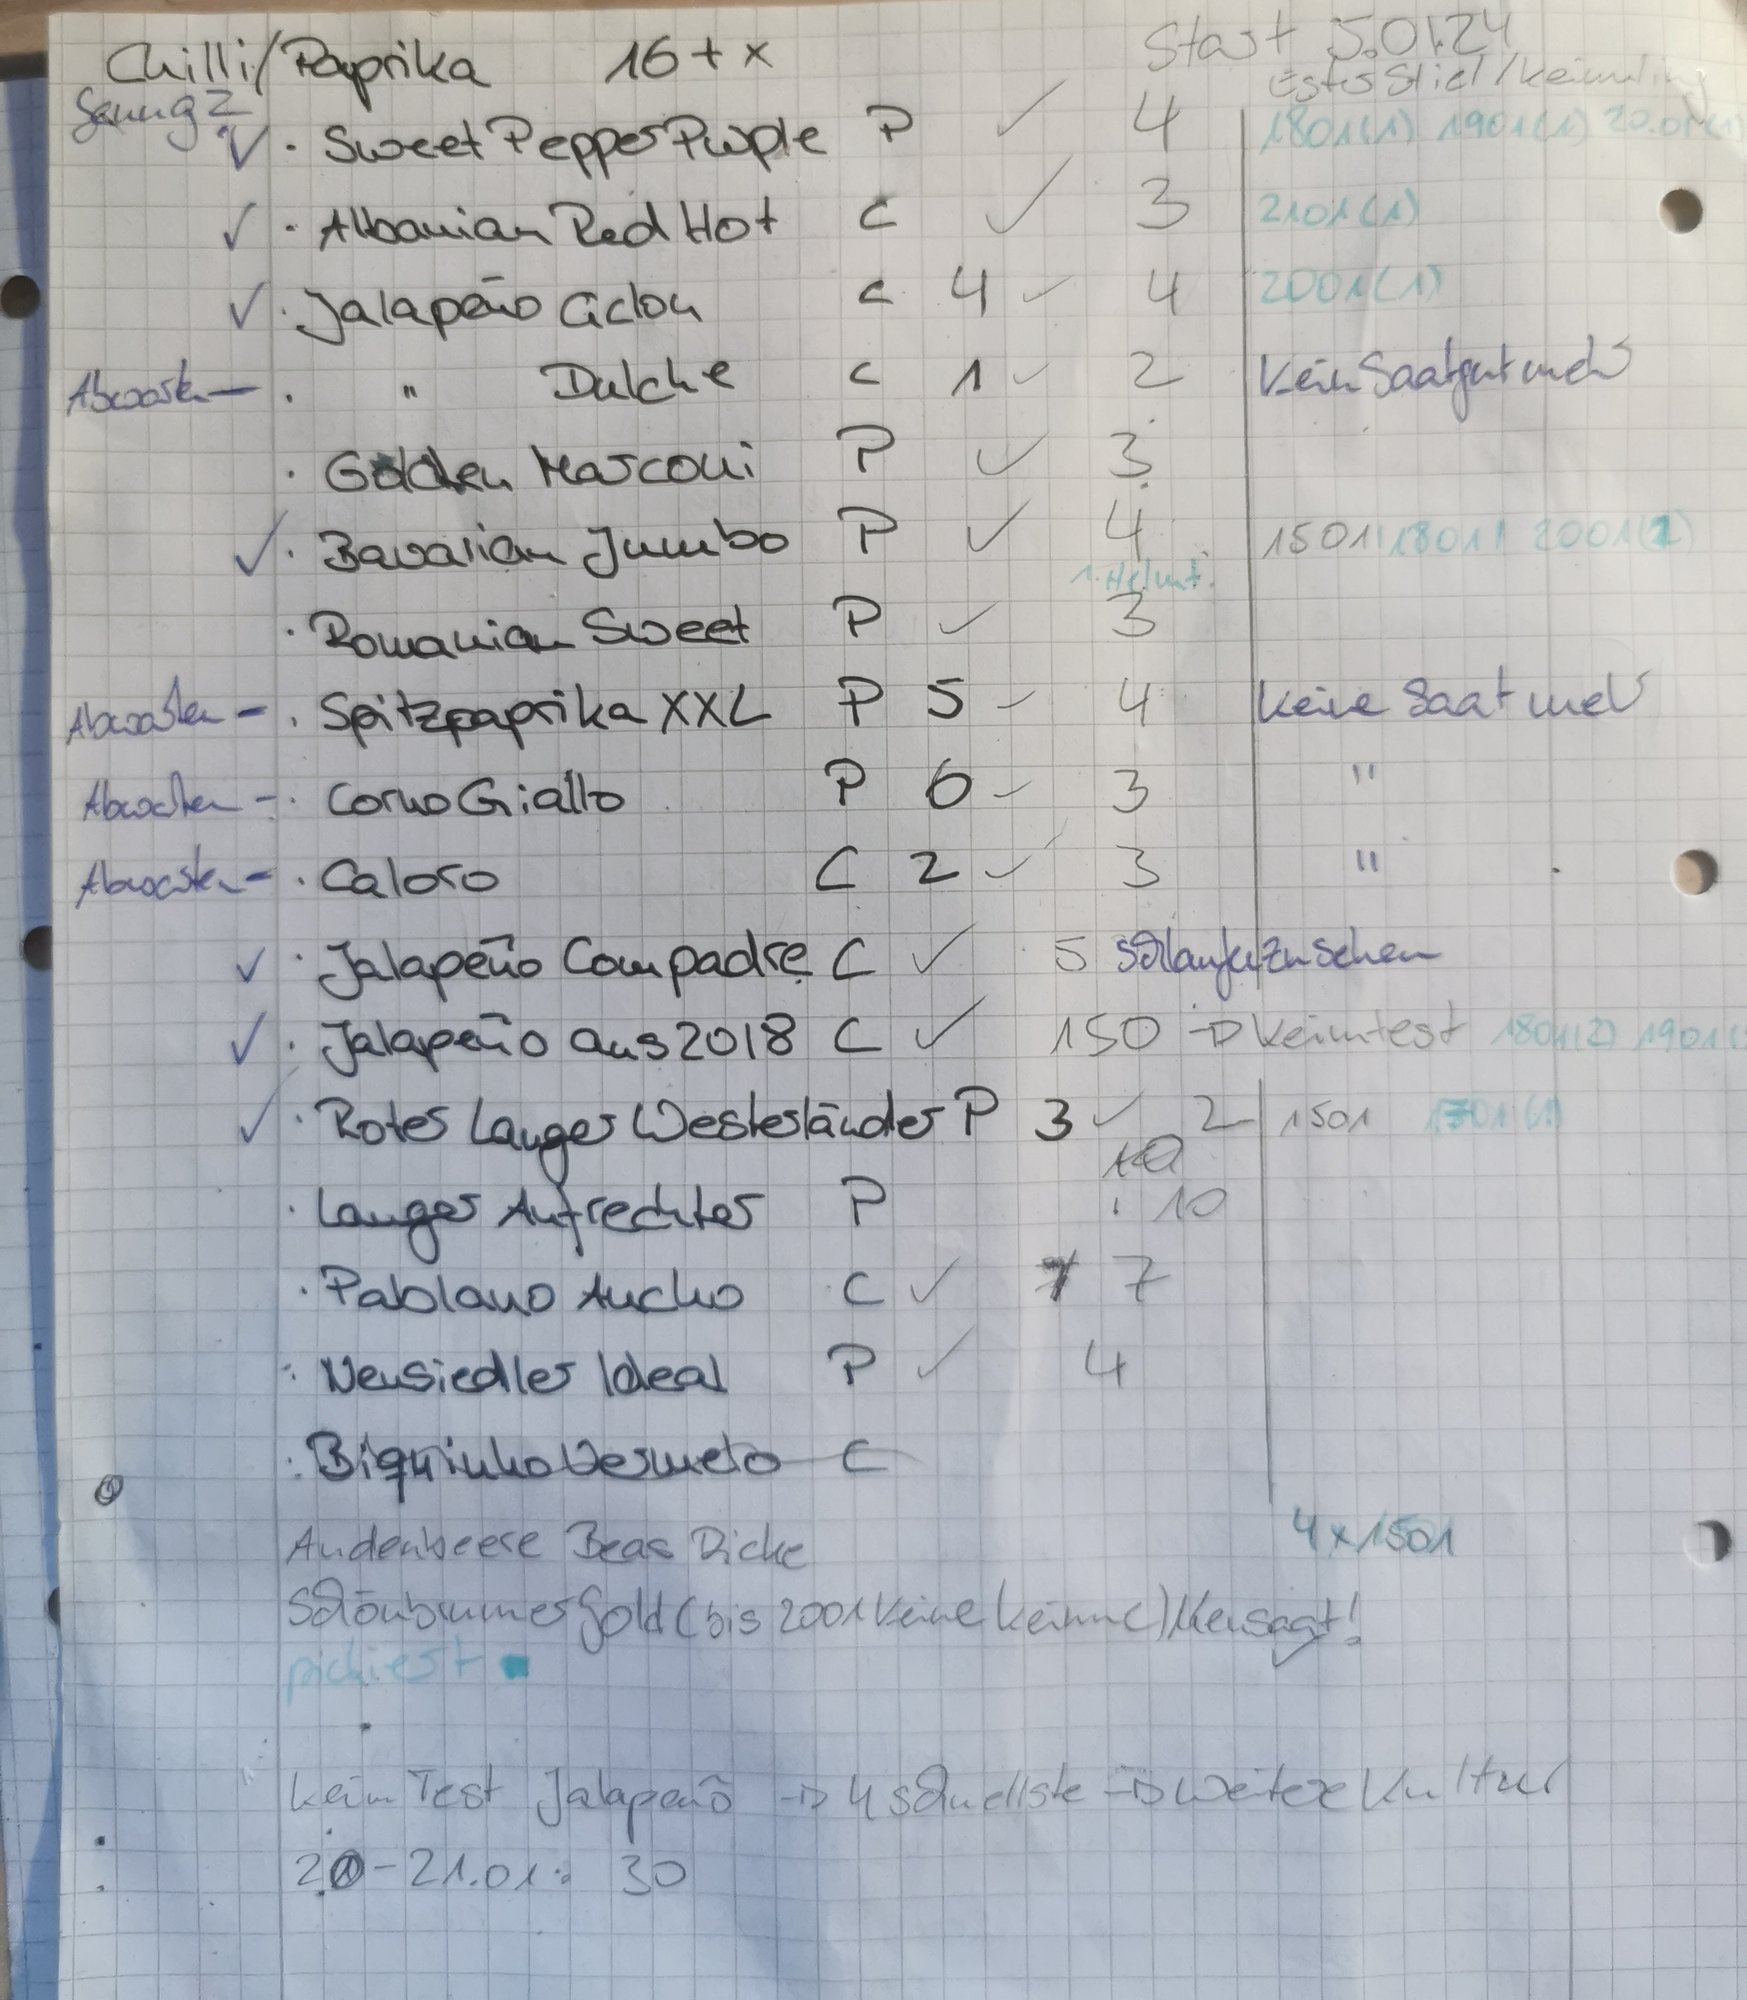 Chilli/Paprika 16 + x Start 5.01.24
Erster Stiel/Keimling
✓ · Sweet Pepper Purple P ✓ 4 1801(1) 1901(1) 20.01(1)
✓ · Albanian Red Hot C ✓ 3 2101(1)
✓ · Jalapeño Ciclon C 4 ✓ 4 2001(1)
Abwarten – · " Dulche C 1 ✓ 2 Kein Saatgut mehr
· Golden Marconi P ✓ 3
✓ · Bavarian Jumbo P ✓ 4 1501 1801 2001
· Romanian Sweet P ✓ 3
Abwarten – · Spitzpaprika XXL P 5 ✓ 4 Keine Saat mehr
Abwarten – · Corno Giallo P 6 ✓ 3 "
Abwarten – · Caloro C 2 ✓ 3 "
✓ · Jalapeño Compadre C ✓ 5 Schlaufe zu sehen
✓ · Jalapeño aus 2018 C ✓ 150 → Keimtest 1801(2) 1901(
✓ · Roter Langer Westerländer P 3 ✓ 2 1501
· Langer Aufrechter P 10
· Pablano Ancho C ✓ 7
· Neusiedler Ideal P ✓ 4
· Biquinho Vermelo C
Andenbeere Beas Dicke 4x1501
Schönbrunner Gold (bis 2001 keine Keime) Neusaat!
pickiert
Keim Test Jalapeño → 4 schnellste → weitere Kultur
20-21.01: 30